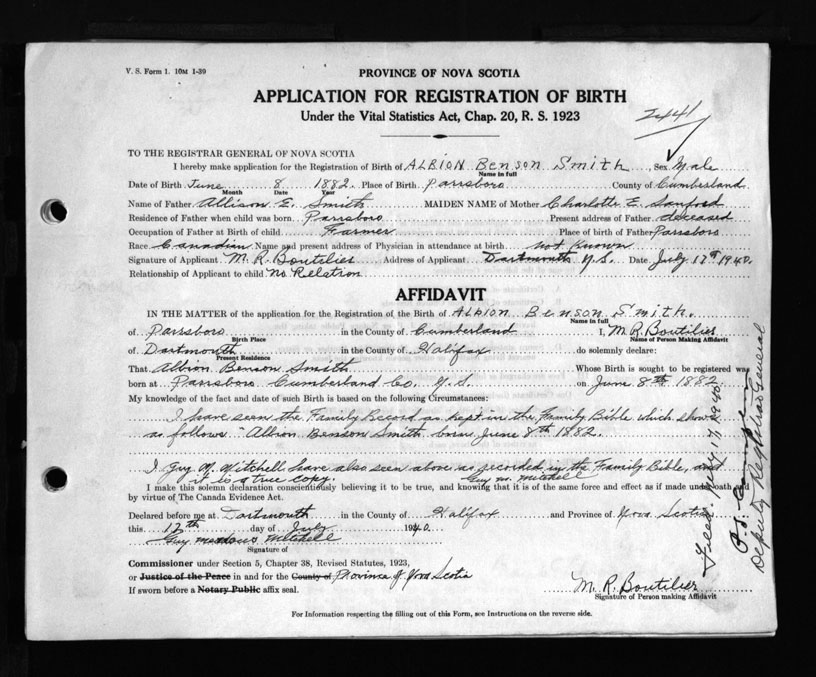 V. S. Form 1. 10M 1-39
PROVINCE OF NOVA SCOTIA
APPLICATION FOR REGISTRATION OF BIRTH
Under the Vital Statistics Act, Chap. 20, R. S. 1923
2441
TO THE REGISTRAR GENERAL OF NOVA SCOTIA
I hereby make application for the Registration of Birth of ALBION Benson Smith, Sex Male
Name in full
Date of Birth June 8 1882. Place of Birth Parrsboro County of Cumberland
Month Date Year
Name of Father Allison E. Smith MAIDEN NAME of Mother Charlotte E. Sanford
Residence of Father when child was born Parrsboro Present address of Father deceased
Occupation of Father at Birth of child Farmer Place of birth of Father Parrsboro
Race Canadian Name and present address of Physician in attendance at birth not Known
Signature of Applicant M. R. Boutilier Address of Applicant Dartmouth N.S. Date July 17th 1940.
Relationship of Applicant to child No Relation
AFFIDAVIT
IN THE MATTER of the application for the Registration of the Birth of ALBION Benson Smith.
Name in full
of Parrsboro in the County of Cumberland I, M. R. Boutilier
Birth Place Name of Person Making Affidavit
of Dartmouth in the County of Halifax do solemnly declare:
Present Residence
That Albion Benson Smith Whose Birth is sought to be registered was
born at Parrsboro Cumberland Co. N.S. on June 8th 1882
My knowledge of the fact and date of such Birth is based on the following Circumstances:
I have seen the Family Record as kept in the Family Bible which shows
as follows "Albion Benson Smith born June 8th 1882.
I Guy M. Mitchell have also seen above as recorded in the Family Bible, and
it is a true copy. Guy M. Mitchell
I make this solemn declaration conscientiously believing it to be true, and knowing that it is of the same force and effect as if made under oath and
by virtue of The Canada Evidence Act.
Declared before me at Dartmouth in the County of Halifax and Province of Nova Scotia
this 17th day of July 1940.
Guy Mitchell
Signature of
Commissioner under Section 5, Chapter 38, Revised Statutes, 1923,
or Justice of the Peace in and for the County of Province of Nova Scotia
If sworn before a Notary Public affix seal.
M. R. Boutilier
Signature of Person making Affidavit
For Information respecting the filling out of this Form, see Instructions on the reverse side.
Deputy Registrar General